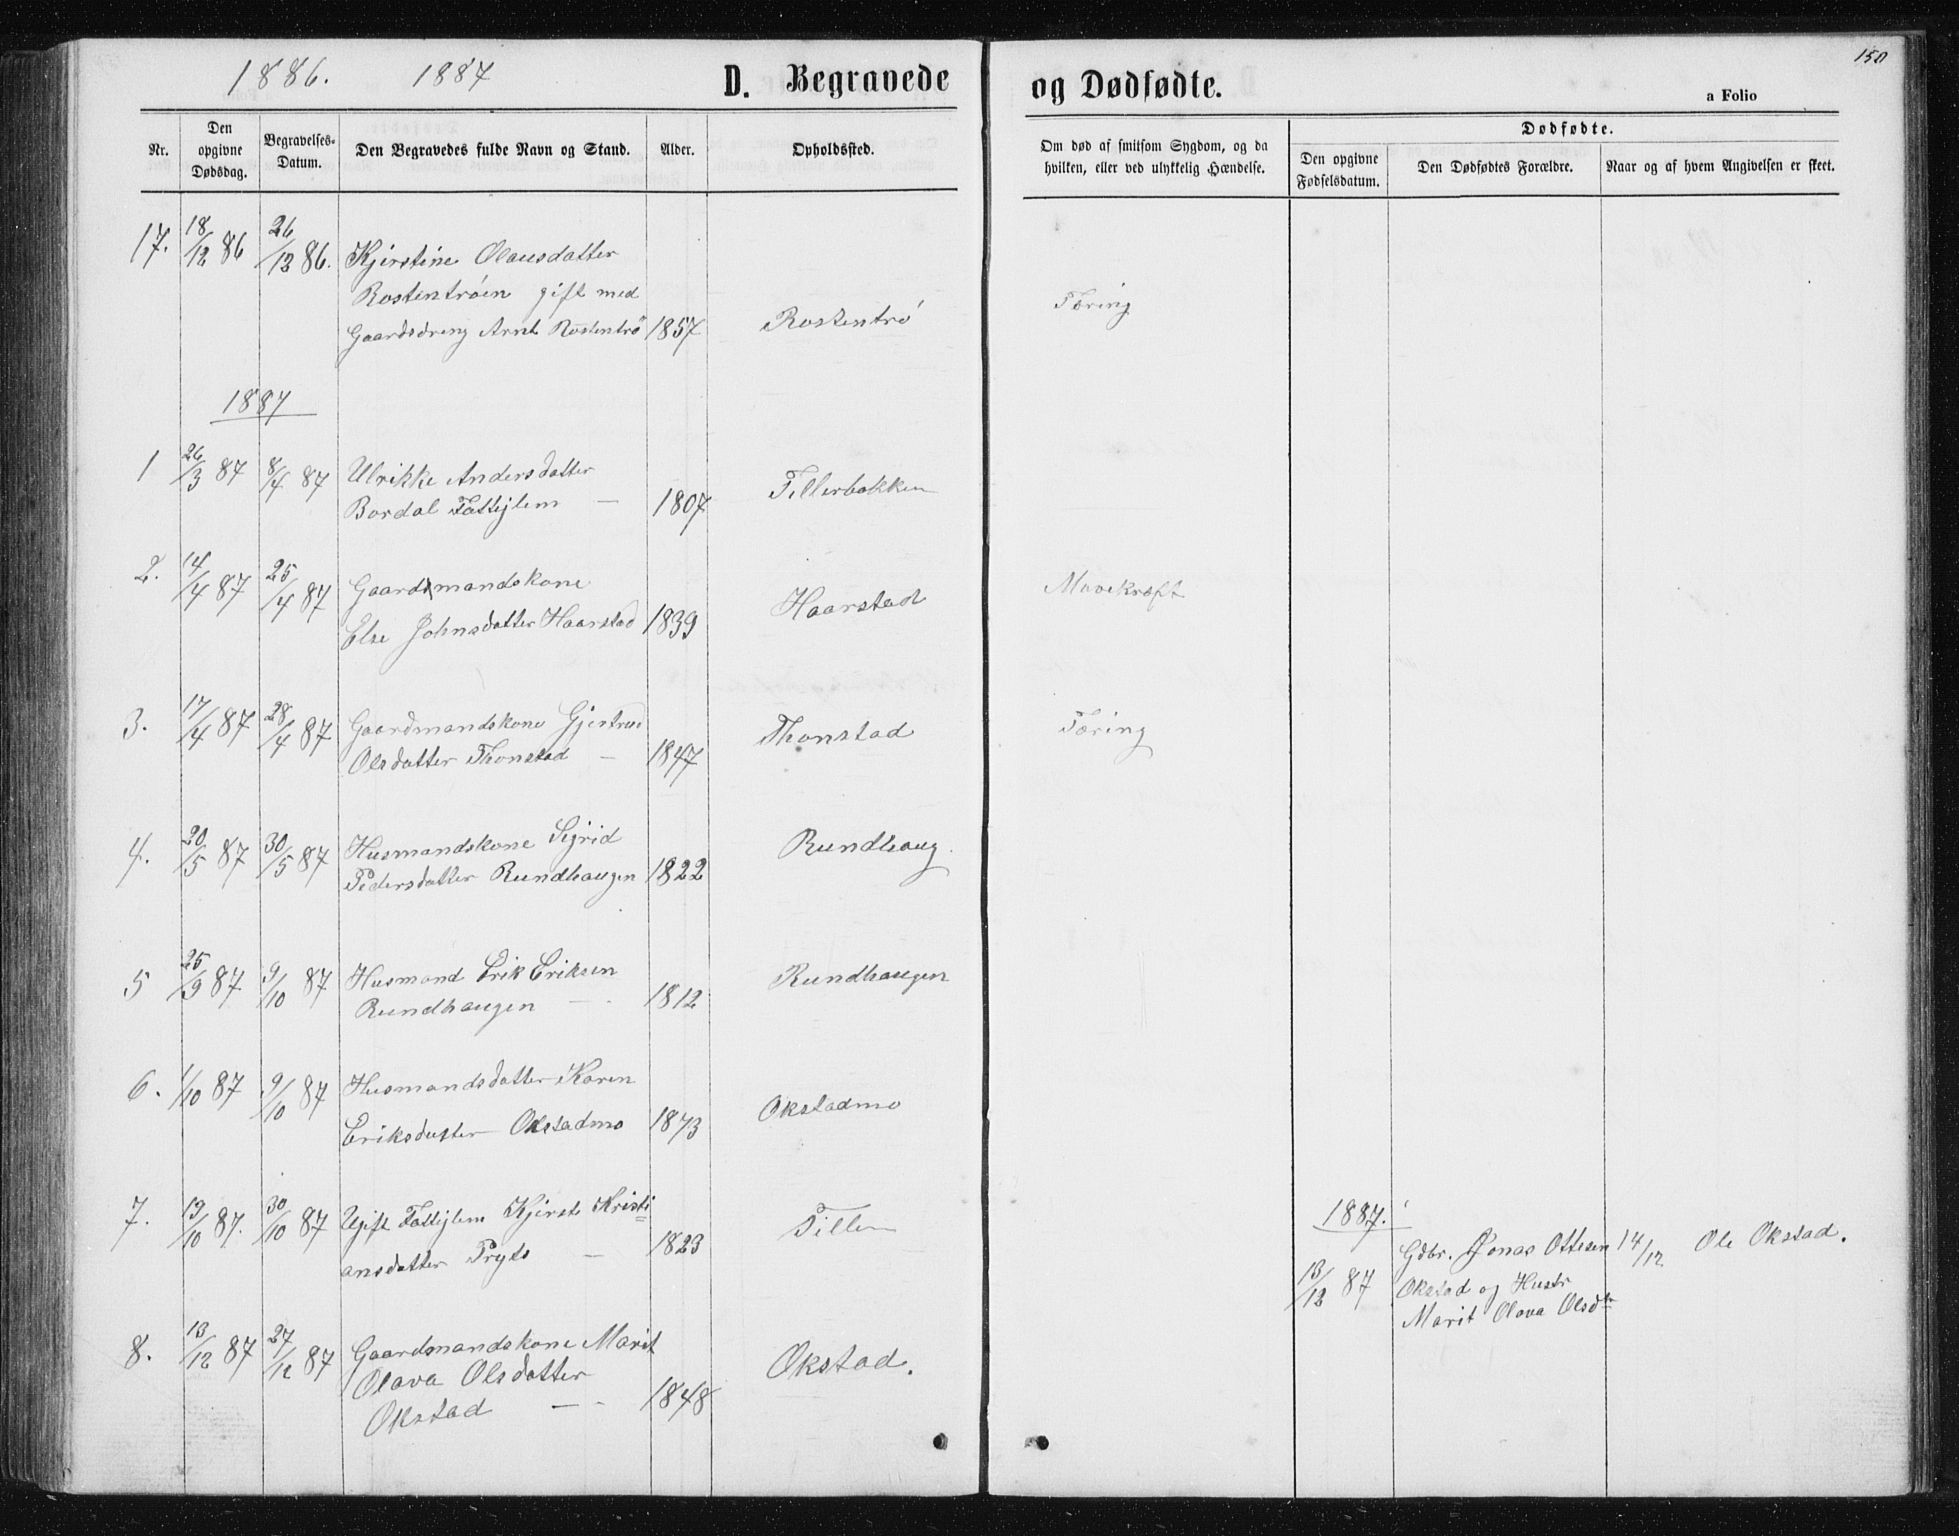 150
1886. 1887
D. Begravede
og Dødfødte.
a Folio
Nr.
Den opgivne Dødsdag.
Begravelses-Datum.
Den Begravedes fulde Navn og Stand.
Alder.
Opholdssted.
Om død af smitsom Sygdom, og da hvilken, eller ved ulykkelig Hændelse.
Dødfødte.
Den opgivne Fødselsdatum.
Den Dødfødtes Forældre.
Naar og af hvem Angivelsen er skeet.
17. 18/12 86 26/12 86. Kjerstine Olausdatter
Rostentrøen gift med
Gaardsdreng Arnt Rostentrø 1857 Rostentrø Tæring
1887
1 26/3 87 8/4 87 Ulrikke Andersdatter
Bordal Fattiglem — 1807 Tillerbakken
2. 14/4 87 25/4 87 Gaardmandskone
Else Johnsdatter Haarstad 1839 Haarstad Mavekræft
3. 17/4 87 28/4 87 Gaardmandskone Gjertrud
Olsdatter Thonstad — 1847 Thonstad Tæring
4. 20/5 87 30/5 87 Husmandskone Sigrid
Pedersdatter Rundhaugen 1822 Rundhaug.
5 25/9 87 9/10 87 Husmand Erik Eriksen
Rundhaugen — 1812 Rundhaugen
6. 1/10 87 9/10 87 Husmandsdatter Karen
Eriksdatter Okstadmo 1873 Okstadmo
7. 19/10 87. 30/10 87 Ugift Fattiglem Kjerste Kristi=
ansdatter Pryts — 1823 Tiller
8. 13/12 87 27/12 87 Gaardmandskone Marit
Olava Olsdatter
Okstad — 1848 Okstad.
1887.
13/12 87 Gdbr. Jonas Ottesen 14/12 Ole Okstad.
Okstad og Hustr
Marit Olava Olsdtr